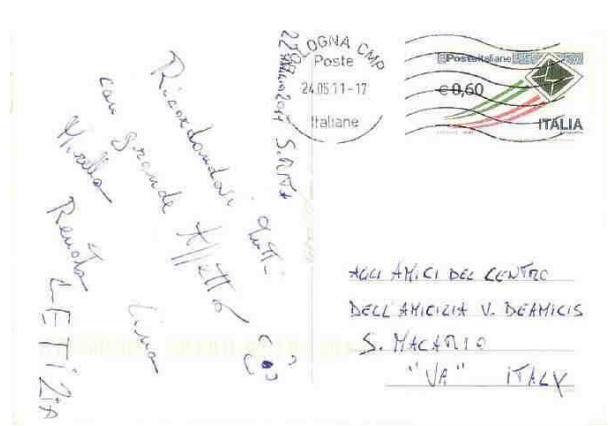 22 MAGGIO 2011 S. RITA
Ricordandovi tutti
con grande Affetto
Mirella Lina
Renata
LETIZIA
BOLOGNA CMP
Poste
24.05.11-17
Italiane
Posteitaliane
€ 0,60
ITALIA
AGLI AMICI DEL CENTRO
DELL'AMICIZIA V. DEAMICIS
S. MACARIO
"VA" ITALY